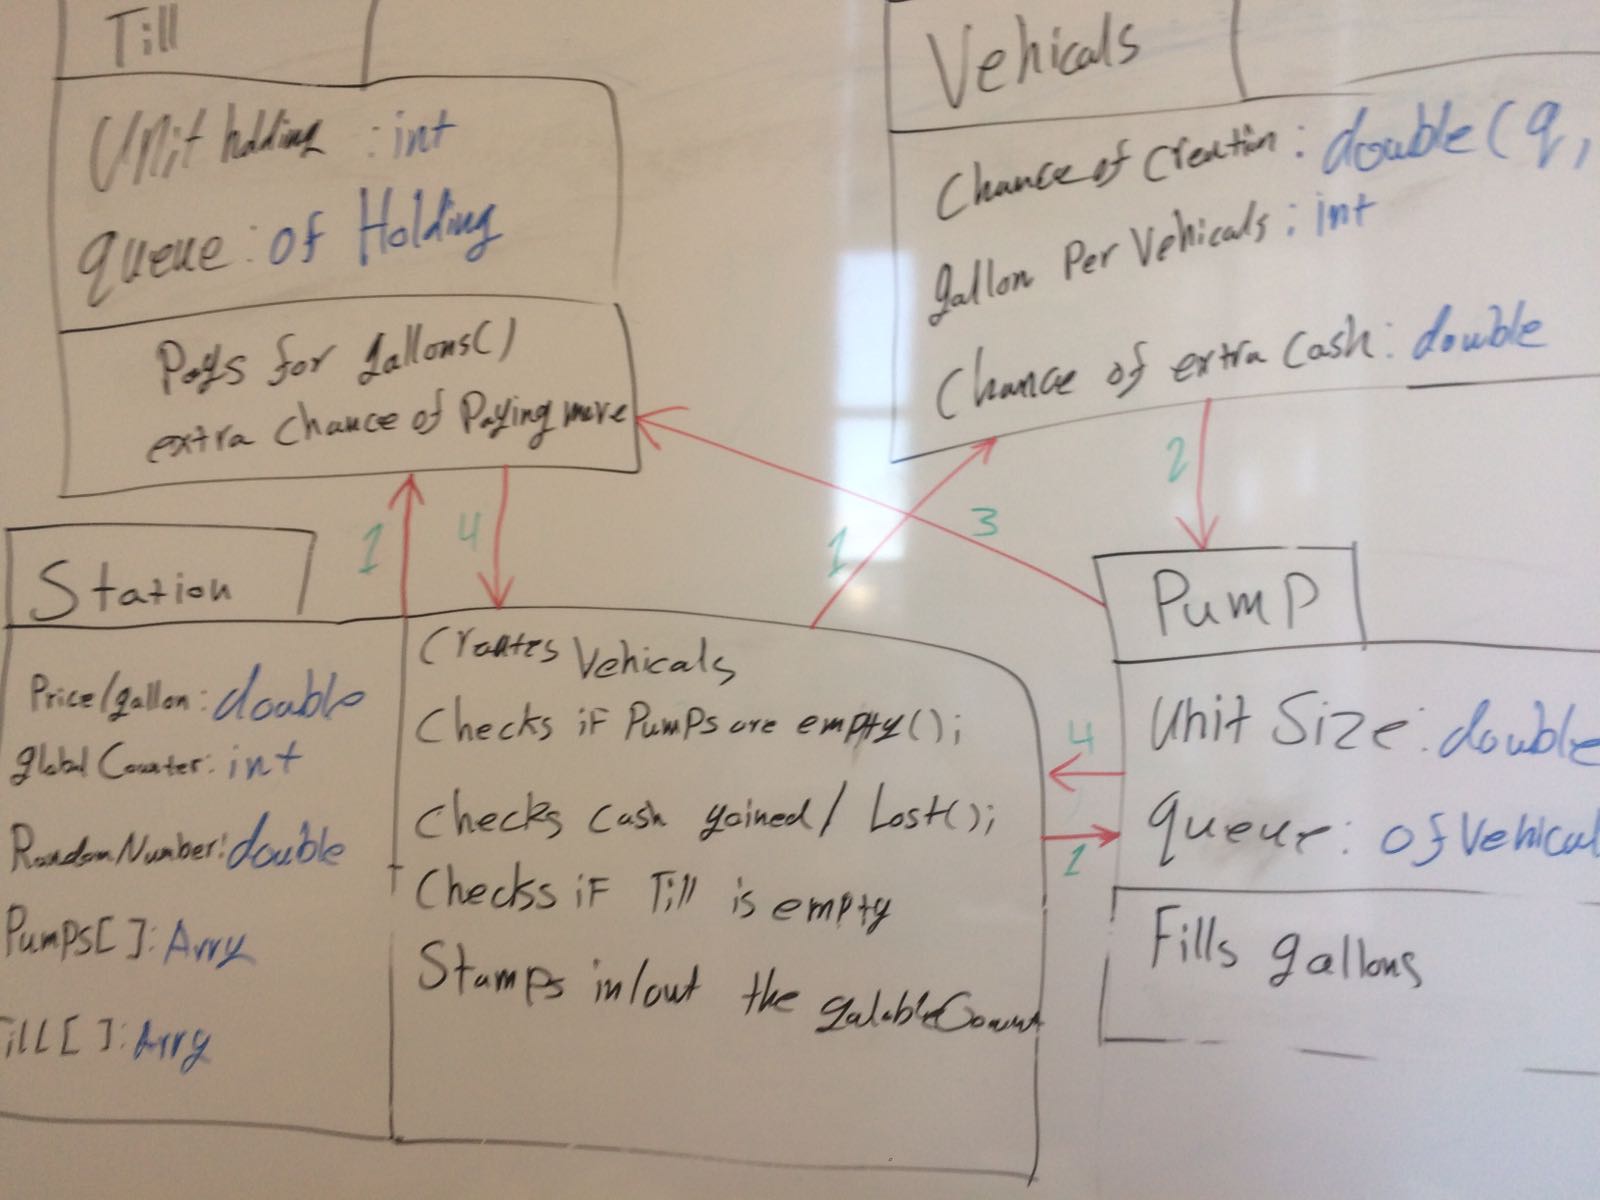 Till
Unit holding : int
queue: of Holding
Pays for gallons()
extra Chance of Paying more
Vehicals
Chance of Creation: double(q,
gallon Per Vehicals: int
Chance of extra Cash: double
1
4
1
3
2
Station
Price/gallon: double
global Counter: int
RandomNumber: double
Pumps[]: Arry
Till[]: Arry
Creates Vehicals
Checks if Pumps are empty();
Checks Cash gained/Lost();
Checks if Till is empty
Stamps in/out the
4
1
Pump
Unit Size: double
queue: of Vehical
Fills gallons